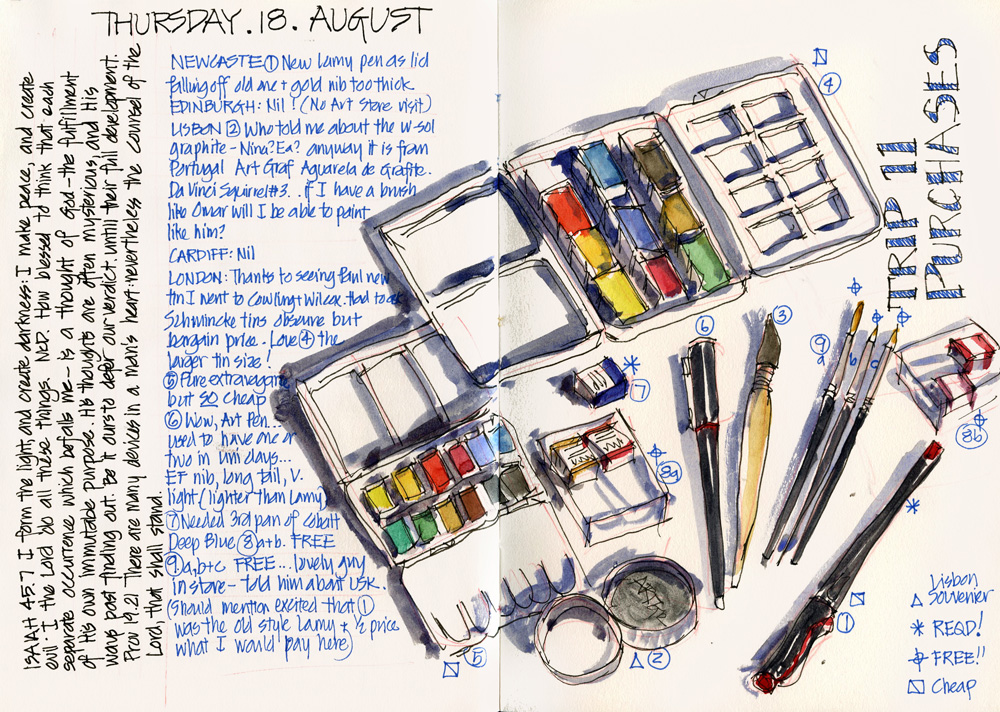 THURSDAY.18.AUGUST
ISAIAH 45:7 I form the light, and create darkness: I make peace, and create
evil: I the Lord do all these things. NCR. How blessed to think that each
separate occurrence which befalls me – is a thought of God – the fulfillment
of His own immutable purpose. His thoughts are often mysterious, and His
ways past finding out. Be it ours to defer our verdict until their full development.
Prov 19.21 There are many devices in a man's heart: nevertheless the counsel of the
Lord, that shall stand.
NEWCASTE ① New Lamy pen as lid
falling off old one + gold nib too thick.
EDINBURGH: Nil! (No Art Store visit)
LISBON ② Who told me about the w-sol
graphite - Nina? Ea? anyway it is from
Portugal Art Graf Aguarela de Grafite.
Da Vinci Squirrel #3.. if I have a brush
like Omar will I be able to paint
like him?
CARDIFF: Nil
LONDON: Thanks to seeing Paul new
tin I went to Cowling + Wilcox. Had to ask
Schmincke tins obscure but
bargain price. Love ④ the
larger tin size!
⑤ Pure extravagance
but SO cheap
⑥ Wow, Art Pen...
used to have one or
two in uni days...
EF nib, long tail, v.
light (lighter than Lamy)
⑦ Needed 3rd pan of Cobalt
Deep Blue ⑧ a+b. FREE
⑨ a, b+c FREE... lovely guy
in store - told him about USK.
(Should mention excited that ①
was the old style Lamy + ½ price
what I would pay here)
TRIP 11
PURCHASES
④
⑥
③
⑨
a
b
c
⑦
8a
8b
⑤
②
①
Lisbon
Souvenier
REQD!
FREE!!
Cheap